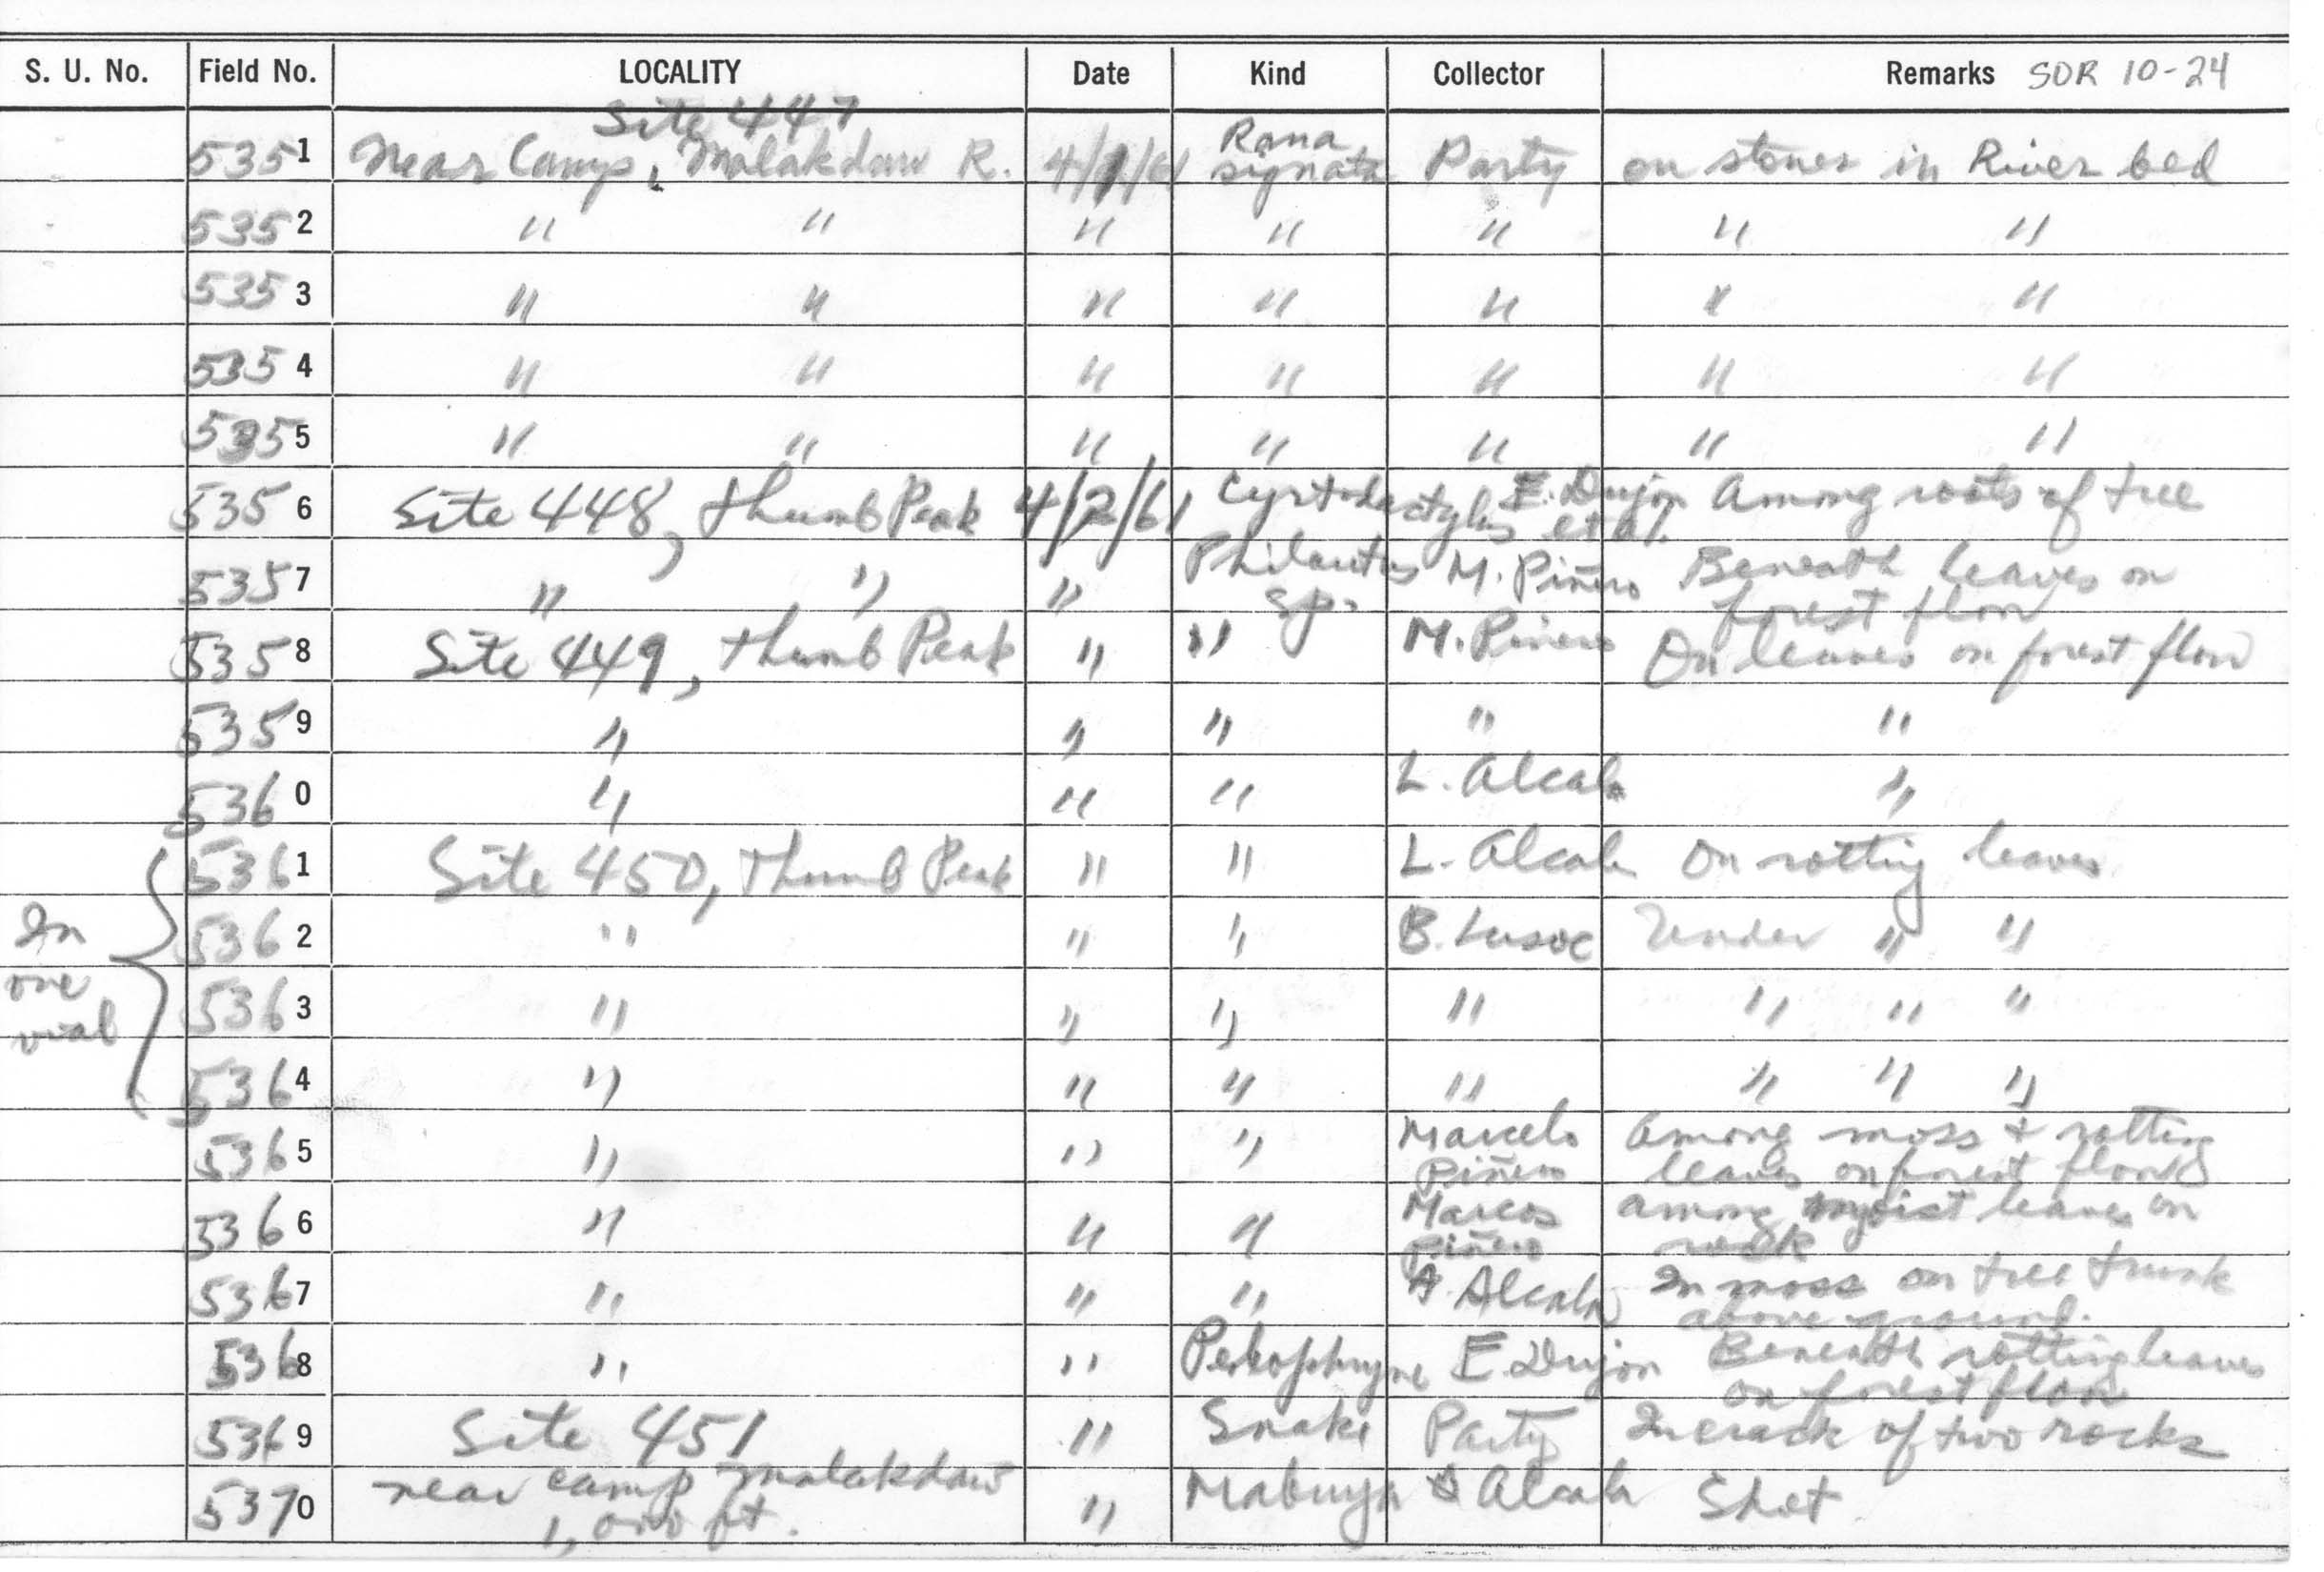 S. U. No. Field No. LOCALITY Date Kind Collector Remarks SOR 10-24
Site 447
5351 Near Camp, Malakdaw R. 4/1/61 Rana signata Party on stones in River bed
5352 " " " " " " "
5353 " " " " " " "
5354 " " " " " " "
5355 " " " " " " "
5356 Site 448, Thumb Peak 4/2/61 Cyrtodactylus E. Dujon et al. Among roots of tree
5357 " " " Philautus sp. M. Piñero Beneath leaves on forest floor
5358 Site 449, Thumb Peak " " M. Piñero On leaves on forest floor
5359 " " " " "
5360 " " " L. Alcala "
5361 Site 450, Thumb Peak " " L. Alcala On rotting leaves
5362 " " " B. Lusoc Under " "
In one vial
5363 " " " " " " "
5364 " " " " " " "
5365 " " " Marcelo Piñero Among moss + rotting leaves on forest floor
5366 " " " Marcos Piñero among moist leaves on rock
5367 " " " A. Alcala In moss on tree trunk above ground.
5368 " " Pelophryne E Dujon Beneath rotting leaves on forest floor
5369 Site 451 " Snake Party In crack of two rocks
5370 near camp Malakdaw 1,000 ft. " Mabuya Alcala Shot